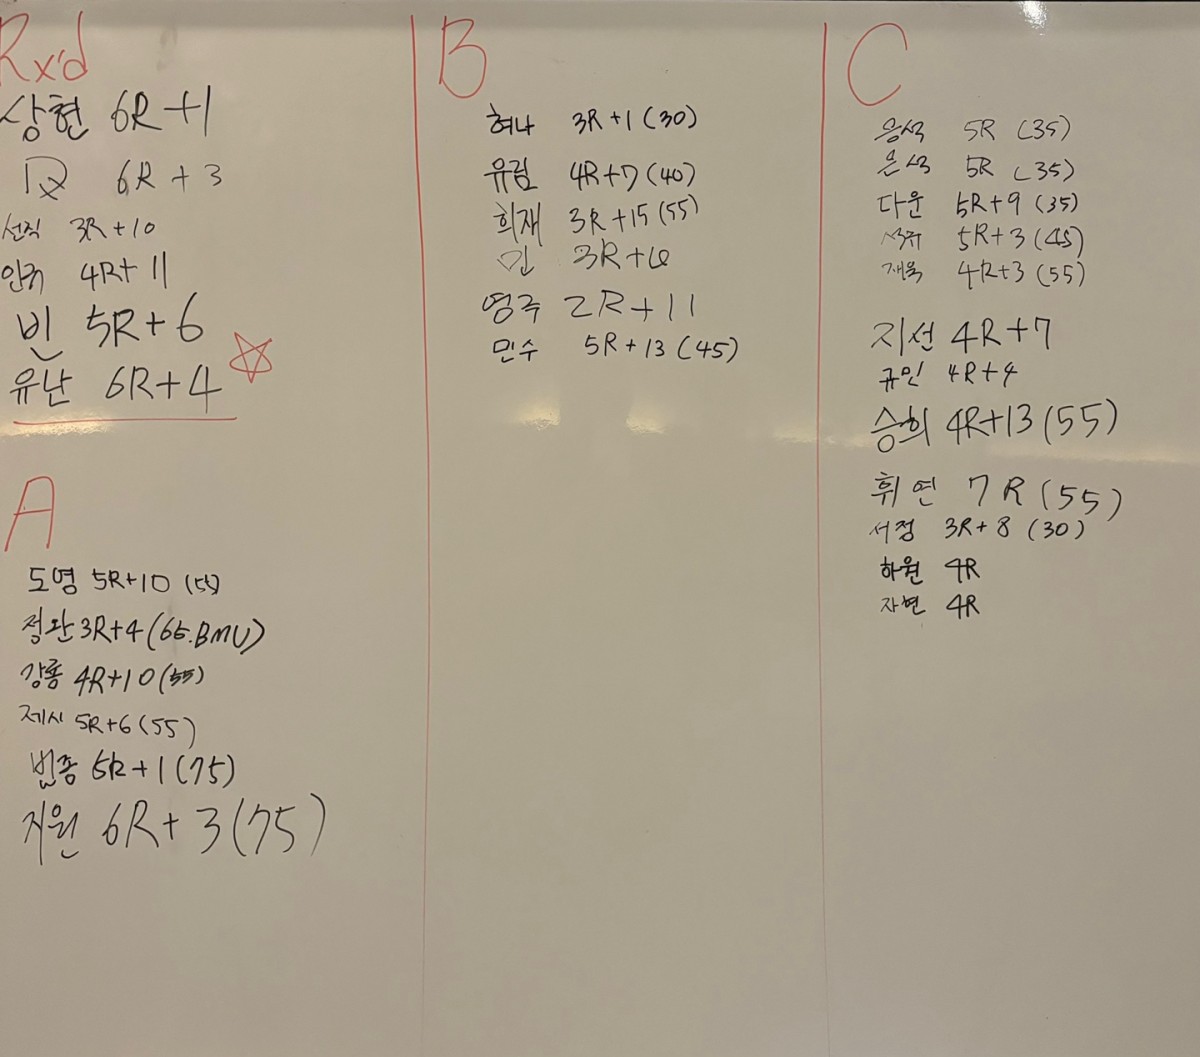 Rx'd
상현 6R+1
6R+3
선직 3R+10
인귀 4R+11
빈 5R+6
유난 6R+4
A
도영 5R+10 (55)
정완 3R+4 (65.BMU)
강룡 4R+10 (55)
제시 5R+6 (55)
번종 5R+1 (75)
지원 6R+3 (75)
B
혀나 3R+1 (30)
유림 4R+7 (40)
희재 3R+15 (55)
♡민 3R+6
영주 2R+11
민수 5R+13 (45)
C
5R (35)
은석 5R (35)
다운 5R+9 (35)
5R+3 (45)
재욱 4R+3 (55)
지선 4R+7
규인 4R+4
승희 4R+13 (55)
휘연 7R (55)
서정 3R+8 (30)
하원 4R
자현 4R